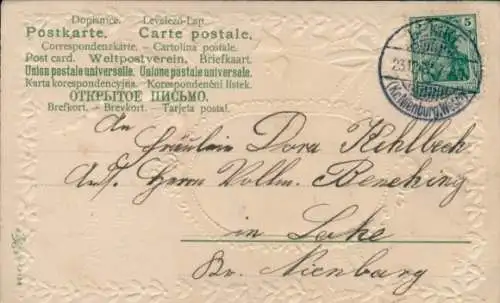 Dopisnice. Levelező-Lap.
Postkarte. Carte postale.
Correspondenzkarte. – Cartolina postale.
Post card. Weltpostverein. Briefkaart.
Union postale universelle. Unione postale universale.
Karta korespondencyjna. Korespondenční lístek.
ОТКРЫТОЕ ПИСЬМО.
Brefkort. – Brevkort. – Tarjeta postal.
5
23.12
(Kr. Nienburg, Weser)
An
Fräulein Dora Kehlbeck
Adr. Herrn Vollm. Benecking
in Lohe
Br. Nienburg